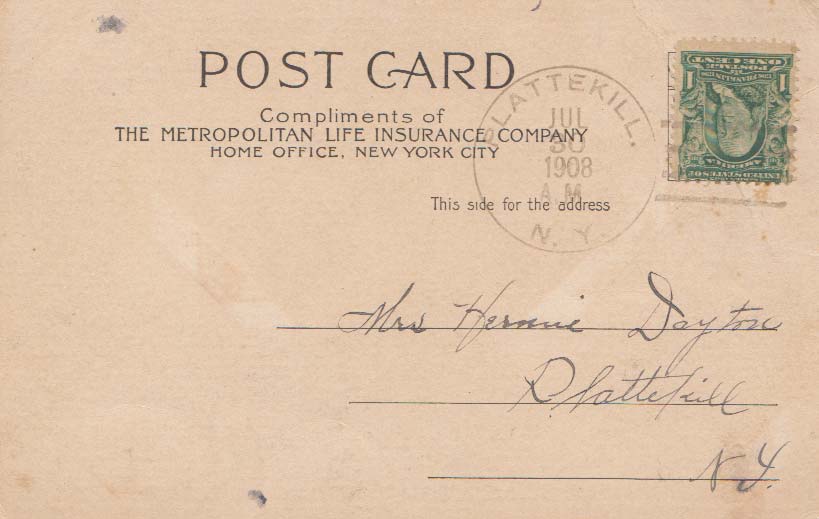 POST CARD
Compliments of
THE METROPOLITAN LIFE INSURANCE COMPANY
HOME OFFICE, NEW YORK CITY
This side for the address
PLATTEKILL.
JUL
30
1908
A.M.
N. Y.
UNITED STATES OF
AMERICA
POSTAGE
ONE CENT
1 1
Mrs Hermie Dayton
Plattekill
N Y.